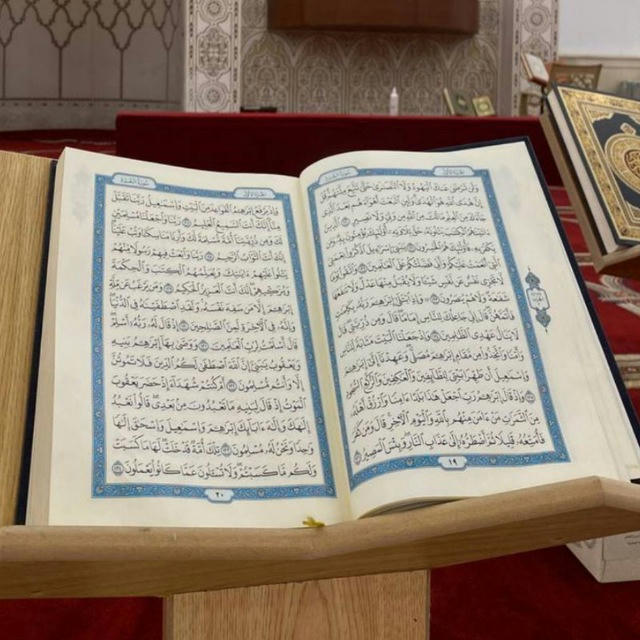 الجزء الأول
سورة البقرة
وَلَن تَرْضَىٰ عَنكَ ٱلْيَهُودُ وَلَا ٱلنَّصَٰرَىٰ حَتَّىٰ تَتَّبِعَ مِلَّتَهُمْ قُلْ
إِنَّ هُدَى ٱللَّهِ هُوَ ٱلْهُدَىٰ وَلَئِنِ ٱتَّبَعْتَ أَهْوَآءَهُم بَعْدَ ٱلَّذِى
جَآءَكَ مِنَ ٱلْعِلْمِ مَا لَكَ مِنَ ٱللَّهِ مِن وَلِىٍّ وَلَا نَصِيرٍ ١٢٠
ٱلَّذِينَ ءَاتَيْنَٰهُمُ ٱلْكِتَٰبَ يَتْلُونَهُۥ حَقَّ تِلَاوَتِهِۦٓ أُو۟لَٰٓئِكَ يُؤْمِنُونَ بِهِۦ وَمَن
يَكْفُرْ بِهِۦ فَأُو۟لَٰٓئِكَ هُمُ ٱلْخَٰسِرُونَ ١٢١ يَٰبَنِىٓ إِسْرَٰٓءِيلَ ٱذْكُرُوا۟ نِعْمَتِىَ
ٱلَّتِىٓ أَنْعَمْتُ عَلَيْكُمْ وَأَنِّى فَضَّلْتُكُمْ عَلَى ٱلْعَٰلَمِينَ ١٢٢ وَٱتَّقُوا۟ يَوْمًا
لَّا تَجْزِى نَفْسٌ عَن نَّفْسٍ شَيْـًٔا وَلَا يُقْبَلُ مِنْهَا عَدْلٌ وَلَا تَنفَعُهَا
شَفَٰعَةٌ وَلَا هُمْ يُنصَرُونَ ١٢٣ وَإِذِ ٱبْتَلَىٰٓ إِبْرَٰهِۦمَ رَبُّهُۥ بِكَلِمَٰتٍ
فَأَتَمَّهُنَّ قَالَ إِنِّى جَاعِلُكَ لِلنَّاسِ إِمَامًا قَالَ وَمِن ذُرِّيَّتِى قَالَ
لَا يَنَالُ عَهْدِى ٱلظَّٰلِمِينَ ١٢٤ وَإِذْ جَعَلْنَا ٱلْبَيْتَ مَثَابَةً لِّلنَّاسِ
وَأَمْنًا وَٱتَّخِذُوا۟ مِن مَّقَامِ إِبْرَٰهِۦمَ مُصَلًّى وَعَهِدْنَآ إِلَىٰٓ إِبْرَٰهِۦمَ
وَإِسْمَٰعِيلَ أَن طَهِّرَا بَيْتِىَ لِلطَّآئِفِينَ وَٱلْعَٰكِفِينَ وَٱلرُّكَّعِ ٱلسُّجُودِ
١٢٥ وَإِذْ قَالَ إِبْرَٰهِۦمُ رَبِّ ٱجْعَلْ هَٰذَا بَلَدًا ءَامِنًا وَٱرْزُقْ أَهْلَهُۥ
مِنَ ٱلثَّمَرَٰتِ مَنْ ءَامَنَ مِنْهُم بِٱللَّهِ وَٱلْيَوْمِ ٱلْـَٔاخِرِ قَالَ وَمَن كَفَرَ
فَأُمَتِّعُهُۥ قَلِيلًا ثُمَّ أَضْطَرُّهُۥٓ إِلَىٰ عَذَابِ ٱلنَّارِ وَبِئْسَ ٱلْمَصِيرُ ١٢٦
١٩
الجزء الأول
سورة البقرة
وَإِذْ يَرْفَعُ إِبْرَٰهِۦمُ ٱلْقَوَاعِدَ مِنَ ٱلْبَيْتِ وَإِسْمَٰعِيلُ رَبَّنَا تَقَبَّلْ
مِنَّآ إِنَّكَ أَنتَ ٱلسَّمِيعُ ٱلْعَلِيمُ ١٢٧ رَبَّنَا وَٱجْعَلْنَا مُسْلِمَيْنِ
لَكَ وَمِن ذُرِّيَّتِنَآ أُمَّةً مُّسْلِمَةً لَّكَ وَأَرِنَا مَنَاسِكَنَا وَتُبْ عَلَيْنَآ
إِنَّكَ أَنتَ ٱلتَّوَّابُ ٱلرَّحِيمُ ١٢٨ رَبَّنَا وَٱبْعَثْ فِيهِمْ رَسُولًا مِّنْهُمْ
يَتْلُوا۟ عَلَيْهِمْ ءَايَٰتِكَ وَيُعَلِّمُهُمُ ٱلْكِتَٰبَ وَٱلْحِكْمَةَ
وَيُزَكِّيهِمْ إِنَّكَ أَنتَ ٱلْعَزِيزُ ٱلْحَكِيمُ ١٢٩ وَمَن يَرْغَبُ عَن مِّلَّةِ
إِبْرَٰهِۦمَ إِلَّا مَن سَفِهَ نَفْسَهُۥ وَلَقَدِ ٱصْطَفَيْنَٰهُ فِى ٱلدُّنْيَا
وَإِنَّهُۥ فِى ٱلْـَٔاخِرَةِ لَمِنَ ٱلصَّٰلِحِينَ ١٣٠ إِذْ قَالَ لَهُۥ رَبُّهُۥٓ أَسْلِمْ
قَالَ أَسْلَمْتُ لِرَبِّ ٱلْعَٰلَمِينَ ١٣١ وَوَصَّىٰ بِهَآ إِبْرَٰهِۦمُ بَنِيهِ
وَيَعْقُوبُ يَٰبَنِىَّ إِنَّ ٱللَّهَ ٱصْطَفَىٰ لَكُمُ ٱلدِّينَ فَلَا تَمُوتُنَّ
إِلَّا وَأَنتُم مُّسْلِمُونَ ١٣٢ أَمْ كُنتُمْ شُهَدَآءَ إِذْ حَضَرَ يَعْقُوبَ
ٱلْمَوْتُ إِذْ قَالَ لِبَنِيهِ مَا تَعْبُدُونَ مِنۢ بَعْدِى قَالُوا۟ نَعْبُدُ
إِلَٰهَكَ وَإِلَٰهَ ءَابَآئِكَ إِبْرَٰهِۦمَ وَإِسْمَٰعِيلَ وَإِسْحَٰقَ إِلَٰهًا
وَٰحِدًا وَنَحْنُ لَهُۥ مُسْلِمُونَ ١٣٣ تِلْكَ أُمَّةٌ قَدْ خَلَتْ لَهَا مَا كَسَبَتْ
وَلَكُم مَّا كَسَبْتُمْ وَلَا تُسْـَٔلُونَ عَمَّا كَانُوا۟ يَعْمَلُونَ ١٣٤
٢٠